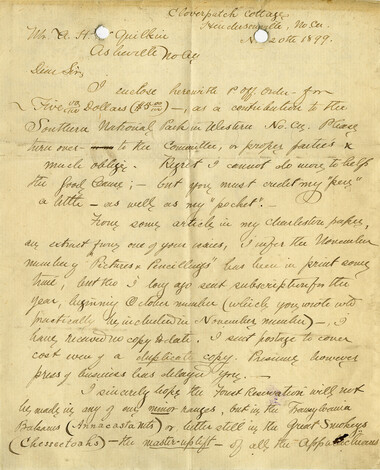 Cloverpatch Cottage
Hendersonville, No. Ca.
Nov. 20th 1899.
Mr. A. H. McQuilkin
Asheville No. Ca.
Dear Sir,
I enclose herewith P. Off. Order for
Five Dollars ($5.00) —, as a contribution to the
Southern National Park in Western No. Ca. Please
turn over to the Committee, or proper parties &
much oblige. Regret I cannot do more to help
the good Cause; — but you must credit my "pen"
a little — as well as my "pocket" —
From some article in my Charleston paper,
an extract from one of your issues, I infer the November
number of "Pictures & Pencillings" has been in print some
time; but tho I long ago sent subscription for the
year, beginning October number (which you wrote wd
practically be included in November number) —, I
have received no copy to date. I sent postage to cover
cost even of a duplicate copy. Presume however
press of business has delayed you. —
I sincerely hope the Forest Reservation will not
be made in any of our minor ranges, but in the Transylvania
Balsams or better still in the Great Smokeys
— the master-uplift — of all the Appalachians